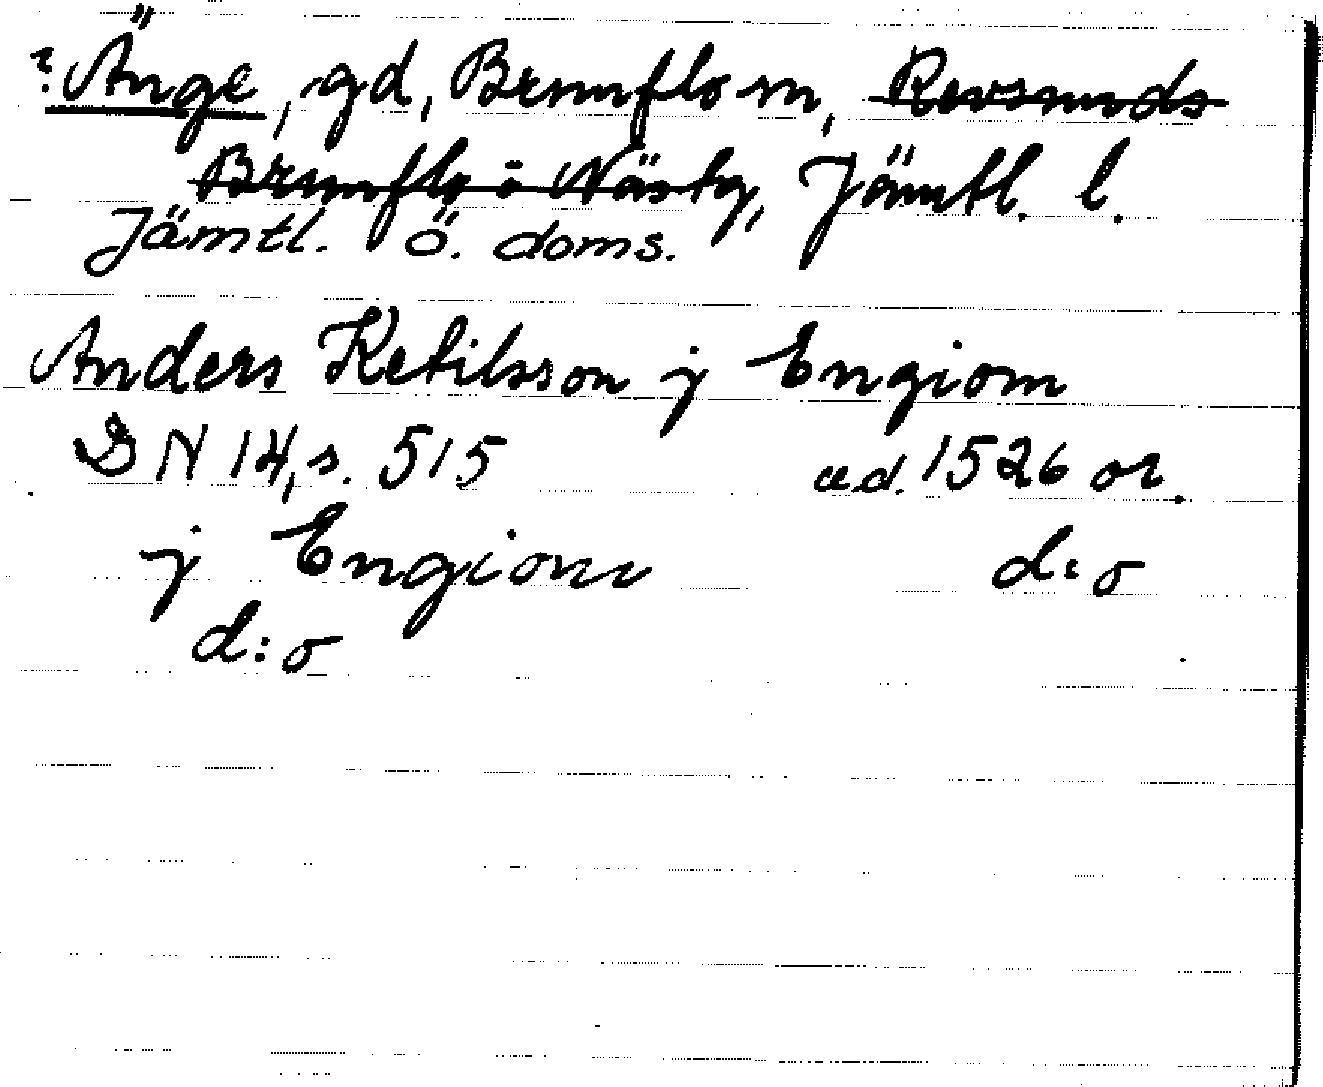 ? Änge, gd, Brunflo sn, Revsunds
Brunflo o Näs tg, Jämtl. l.
Jämtl. ö. doms.
Anders Ketilsson j Engiom
DN 14, s. 515 ud. 1526 or.
j Engiom d:o
d:o